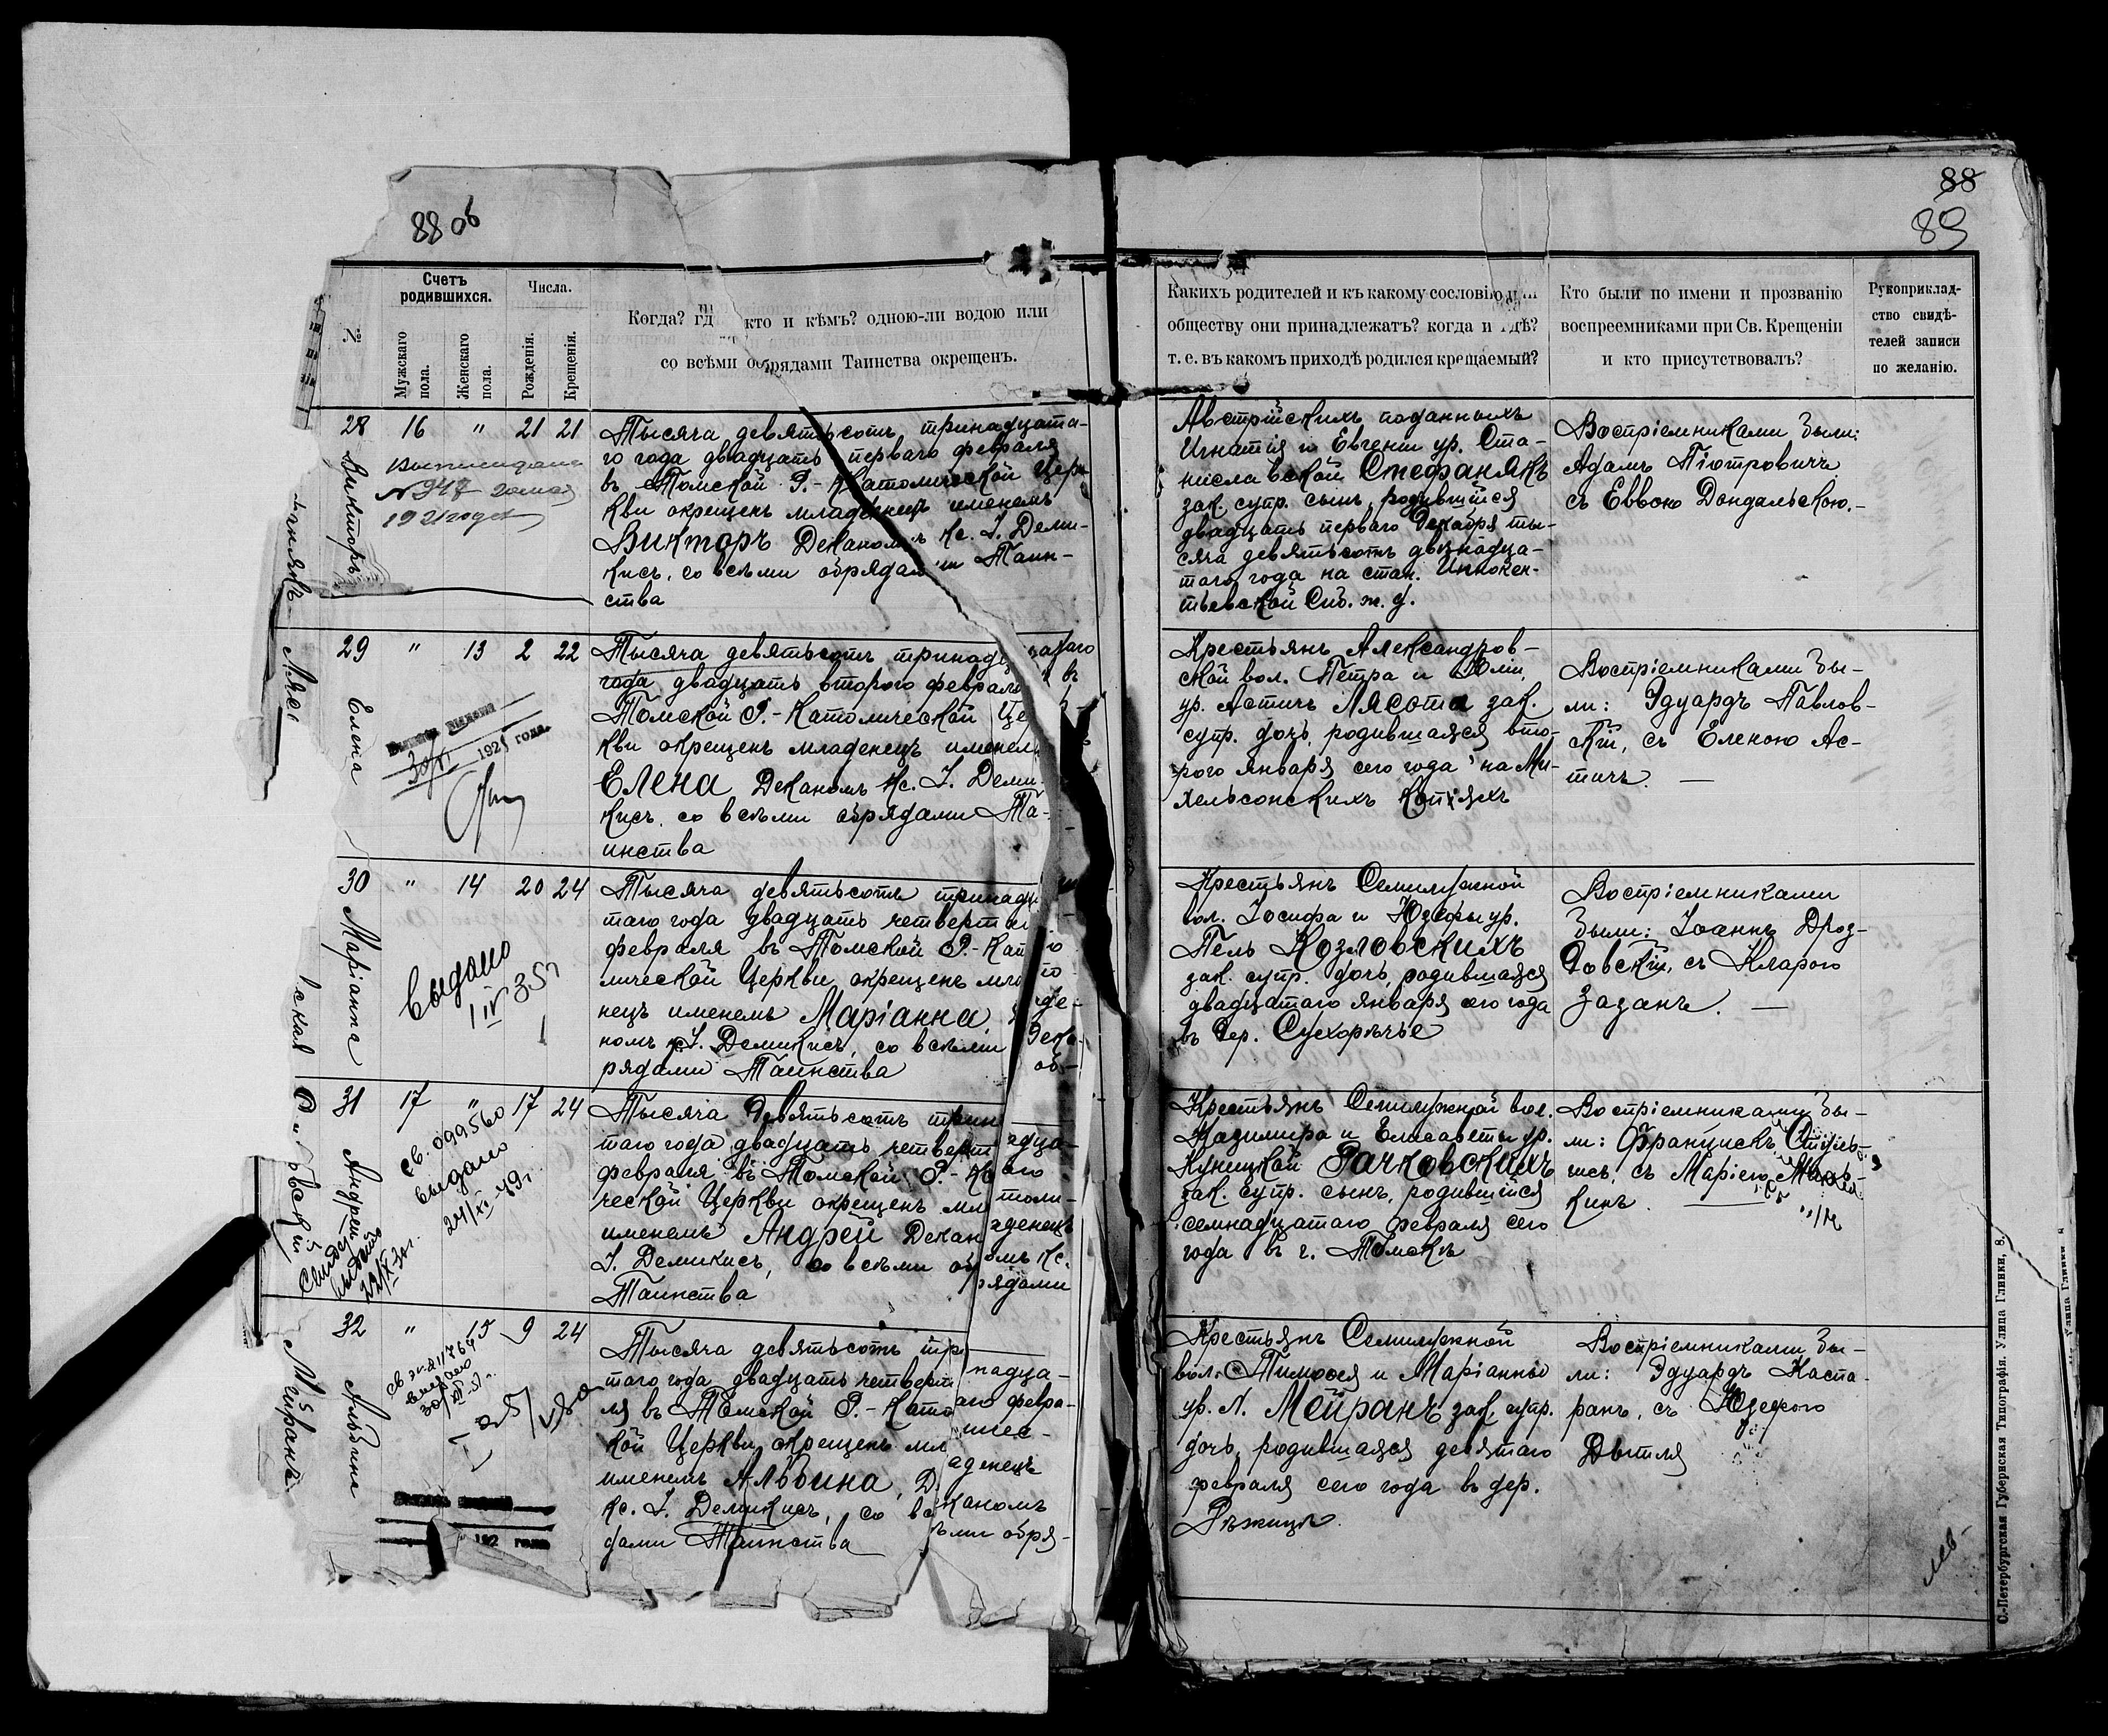 88 об
88
89
Счетъ родившихся.
Числа.
Мужскаго пола.
Женскаго пола.
Рожденія.
Крещенія.
кто и кѣмъ? одною-ли водою или
со всѣми обрядами Таинства окрещенъ.
Какихъ родителей и къ какому сословію
обществу они принадлежатъ? когда и гдѣ?
т. е. въ какомъ приходѣ родился крещаемый?
Кто были по имени и прозванію
воспреемниками при Св. Крещеніи
и кто присутствовалъ?
Рукоприклад-
ство свидѣ-
телей записи
по желанію.
28 16 " 21 21
Викторъ
№ 347
1921 года
Тысяча девятьсотъ тринадцата-
го года двадцать перваго февраля
въ Томской Р.-Католической Цер
кви окрещенъ младенецъ именемъ
Викторъ Деканомъ Кс. І. Деми-
кисъ, со всѣми обрядами Таин-
ства
Австрійскихъ подданныхъ
Игнатія и Евгеніи ур. Ста-
ниславской Стефанякъ
зак. супр. сынъ, родившійся
двадцать перваго Декабря ты-
сяча девятьсотъ двѣнадца-
таго года на стан. Иннокен-
тьевской Сиб. ж. д.
Воспріемниками были:
Адамъ Піотровичъ
съ Еввою Дондальскою.-
29 " 13 2 22
Елена
192 года.
Тысяча девятьсотъ тринадцатаго
года двадцать второго февраля въ
Томской Р.-Католической Цер-
кви окрещенъ младенецъ именемъ
Елена Деканомъ Кс. І. Деми-
кисъ, со всѣми обрядами Та-
инства
Крестьянъ Александров-
ской вол. Петра и Юліи
ур. Астичъ Лясота зак.
супр. дочь, родившаяся вто-
рого января сего года на Ми-
хельсонскихъ копяхъ
Воспріемниками бы-
ли: Эдуардъ Павлов-
скій, съ Еленою Ас-
тичъ. —
30 " 14 20 24
Маріанна
выдано
1 IV 35 г
Тысяча девятьсотъ тринадца
таго года двадцать четвертаго
февраля въ Томской Р.-Като
лической Церкви окрещенъ младе-
нецъ именемъ Маріанна, Дека-
номъ Кс. І. Демикисъ, со всѣми об-
рядами Таинства
Крестьянъ Семилужной
вол. Іосифа и Юзефы ур.
Пель Козловскихъ
зак. супр. дочь, родившаяся
двадцатаго января сего года
въ дер. Сухорѣчье
Воспріемниками
были: Іоаннъ Дроз-
довскій, съ Кларою
Заданъ. —
31 17 " 17 24
Андрей
св. 099560
выдано
24/XI-49г.
Тысяча девятьсотъ тринадца-
таго года двадцать четвертаго
февраля въ Томской Р.-Католи-
ческой Церкви окрещенъ младенецъ
именемъ Андрей Деканомъ Кс.
І. Демикисъ, со всѣми обрядами
Таинства
Крестьянъ Семилужной вол.
Казимира и Елисаветы ур.
Куницкой Рачковскихъ
зак. супр. сынъ, родившійся
семнадцатаго февраля сего
года въ г. Томскѣ
Воспріемниками бы-
ли: Францискъ
съ Маріею
кинъ.
32 " 15 9 24
Альбина
Мейранъ
выдано
192 года
Тысяча девятьсотъ тринадца-
таго года двадцать четвертаго февра-
ля въ Томской Р.-Католичес-
кой Церкви окрещенъ младенецъ
именемъ Альбина, Деканомъ
Кс. І. Демикисъ, со всѣми обря-
дами Таинства
Крестьянъ Семилужной
вол. Тимофея и Маріанны
ур. Л. Мейранъ зак. супр.
дочь, родившаяся девятаго
февраля сего года въ дер.
Рѣжицѣ.
Воспріемниками бы-
ли: Эдуардъ Каспа-
ранъ, съ Юзефою
С.-Петербургская Губернская Типографія. Улица Глинки, 8.